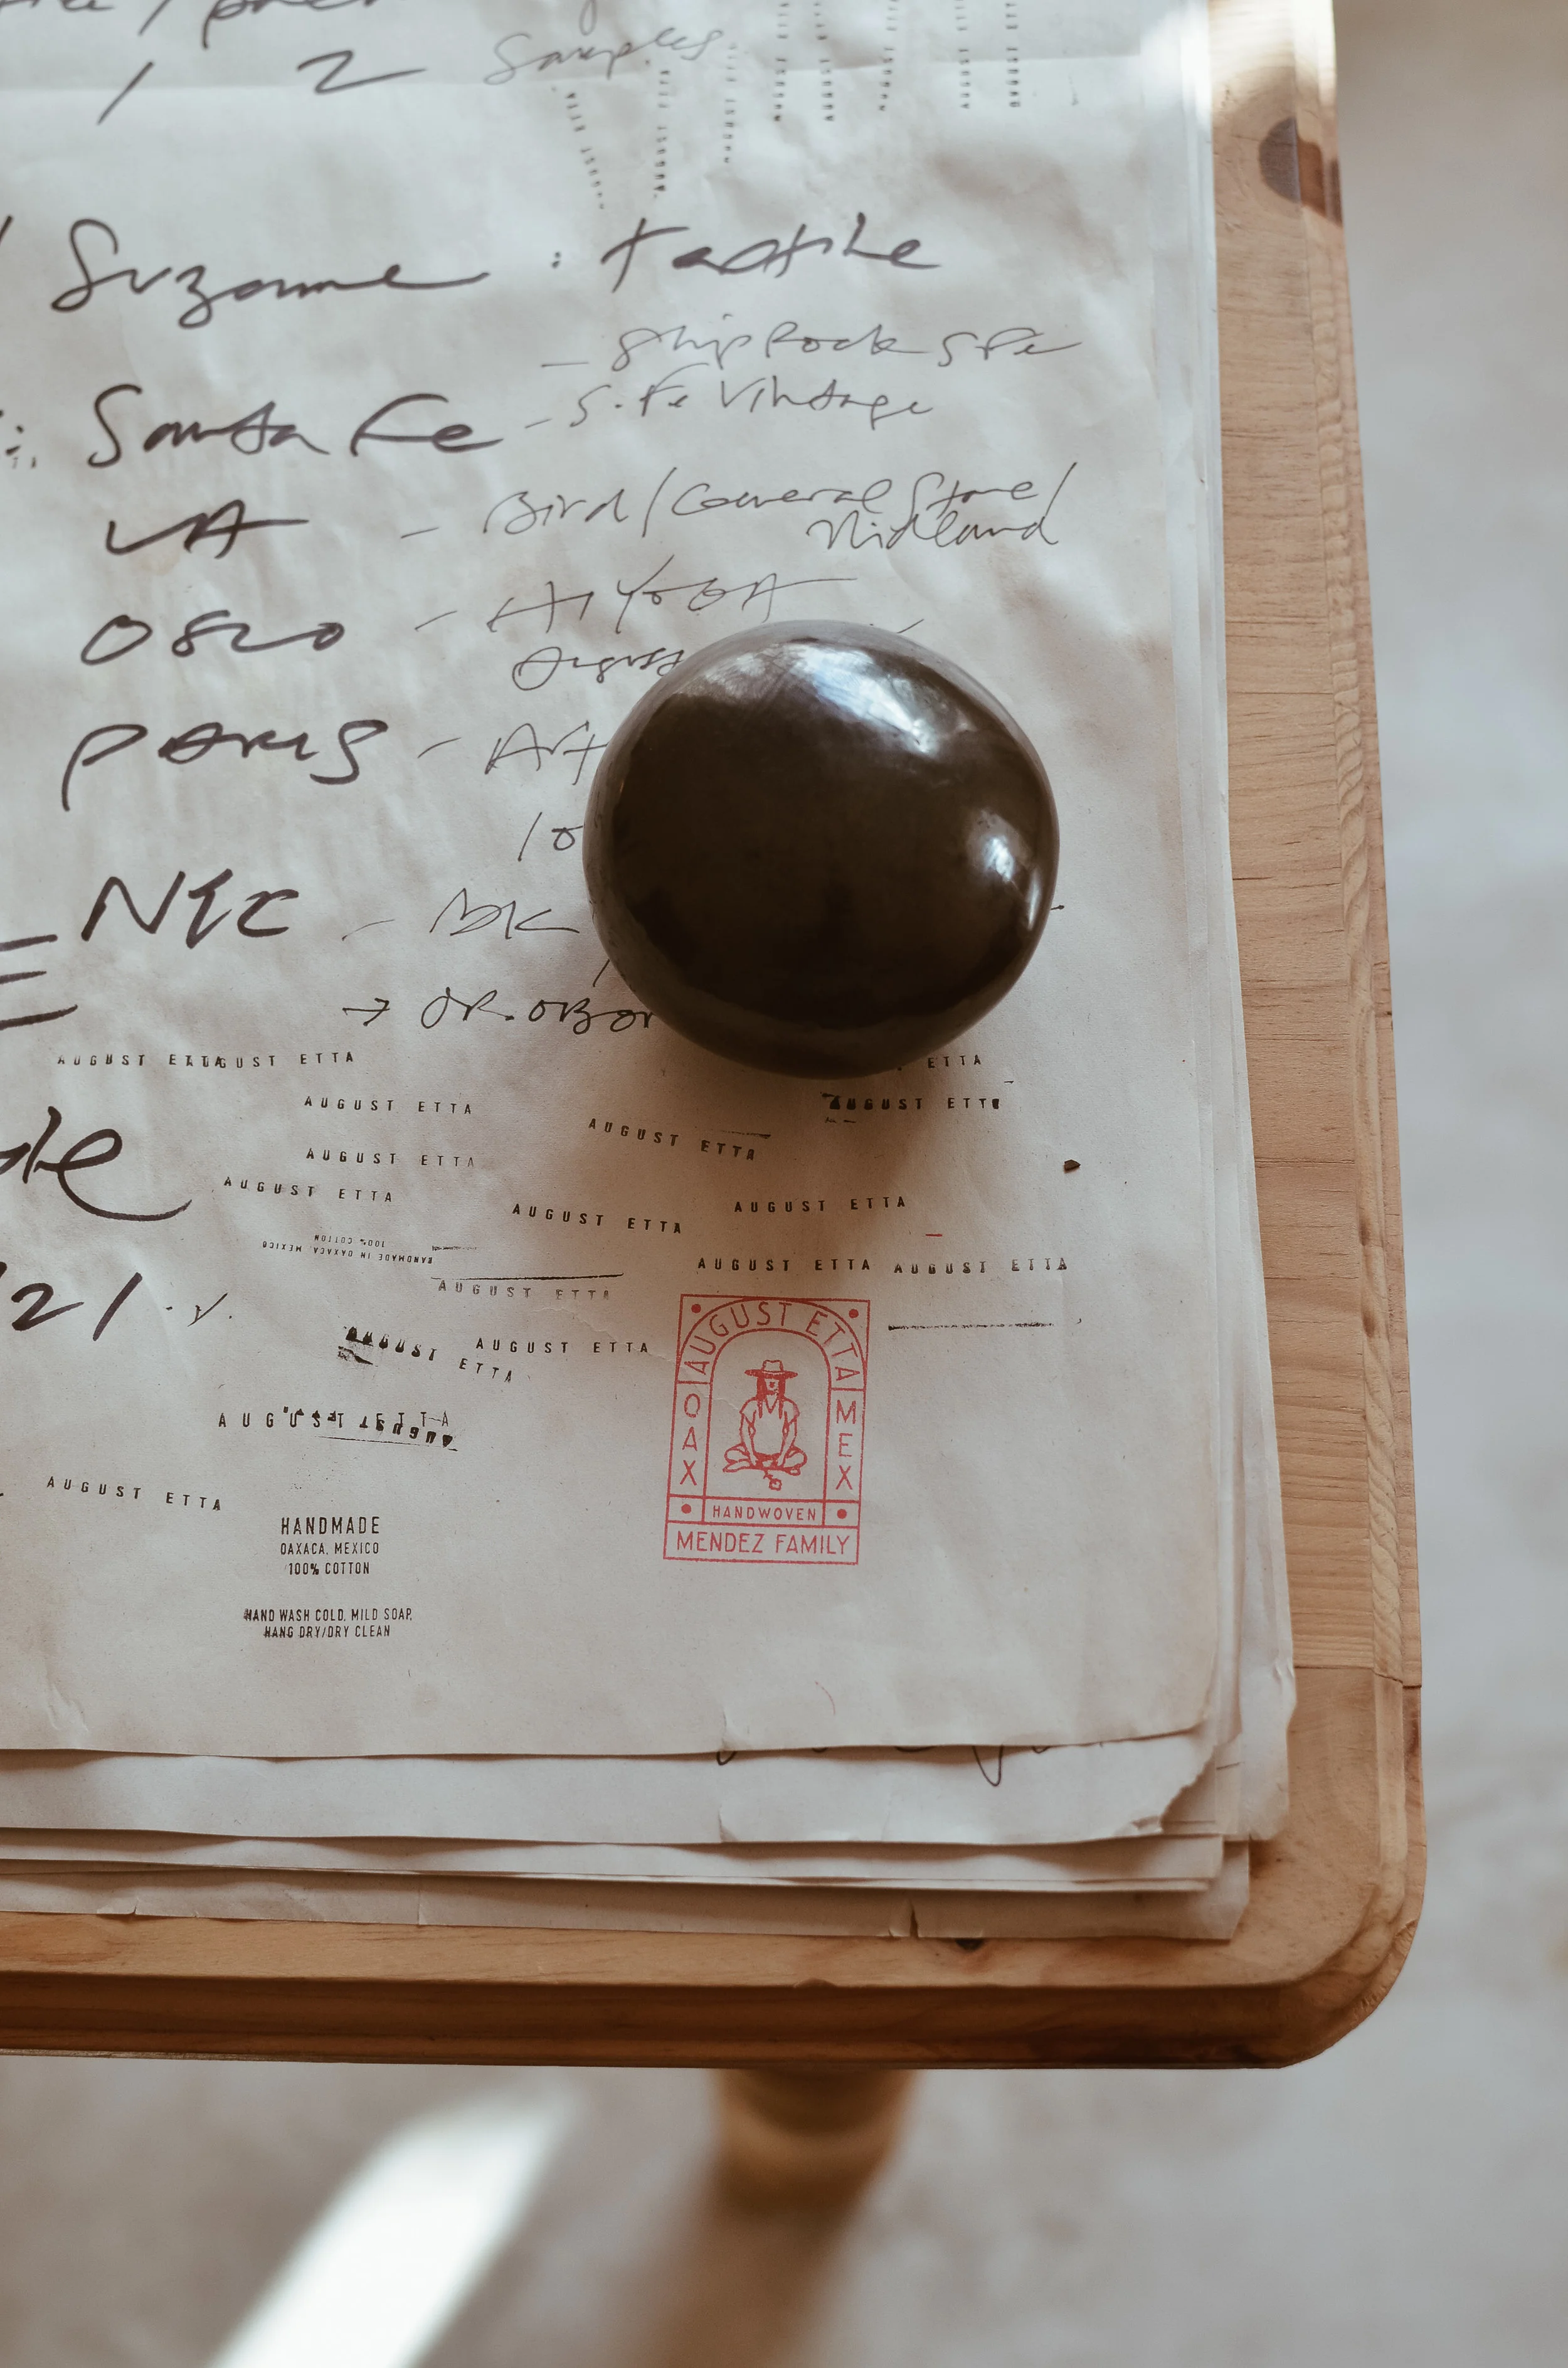 1 2 Samples
AUGUST ETTA AUGUST ETTA AUGUST ETTA AUGUST ETTA AUGUST ETTA
Suzanne : tactile
- Shiprock S Fe
Santa Fe - S. Fe Vintage
LA - Bird / General Store /
Midland
OSLO -
August
PARIS - Art
10
NYC - BK
→ DR.
AUGUST ETTA AUGUST ETTA ETTA
AUGUST ETTA AUGUST ETTA
AUGUST ETTA
AUGUST ETTA
AUGUST ETTA
AUGUST ETTA AUGUST ETTA
HANDMADE IN OAXACA, MEXICO
100% COTTON
AUGUST ETTA AUGUST ETTA
AUGUST ETTA
21
AUGUST ETTA AUGUST ETTA
AUGUST ETTA
AUGUST
AUGUST ETTA
AUGUST ETTA
OAX
MEX
HANDWOVEN
MENDEZ FAMILY
HANDMADE
OAXACA, MEXICO
100% COTTON
HAND WASH COLD, MILD SOAP,
HANG DRY/DRY CLEAN